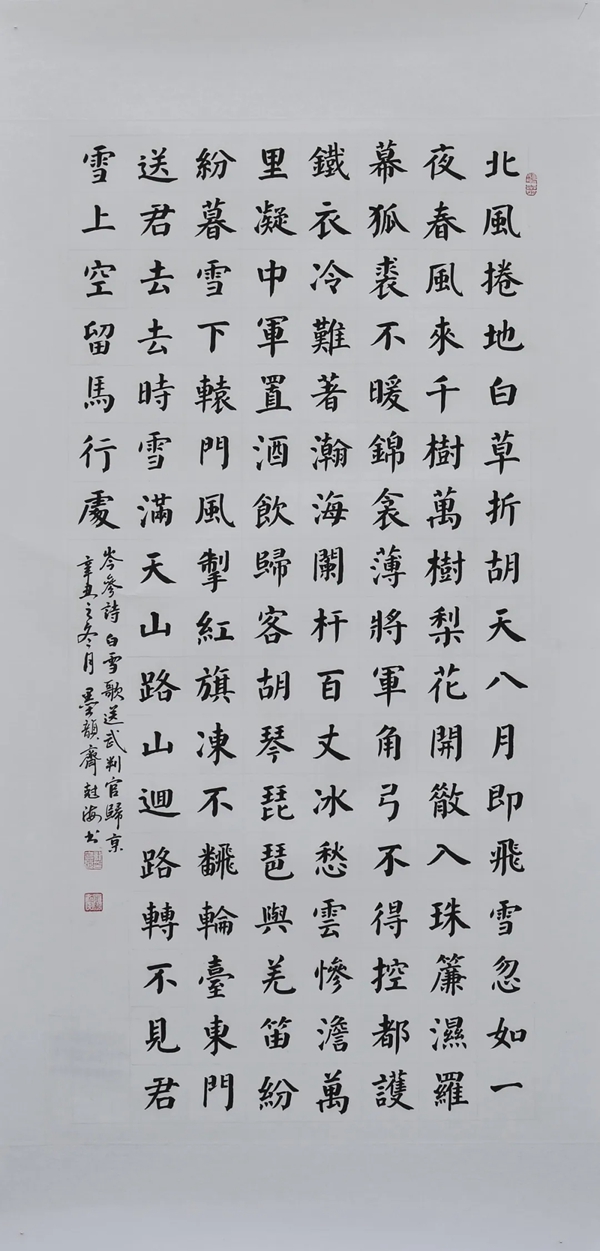 北風捲地白草折胡天八月即飛雪忽如一
夜春風來千樹萬樹梨花開散入珠簾濕羅
幕狐裘不暖錦衾薄將軍角弓不得控都護
鐵衣冷難著瀚海闌杆百丈冰愁雲慘澹萬
里凝中軍置酒飲歸客胡琴琵琶與羌笛紛
紛暮雪下轅門風掣紅旗凍不飜輪臺東門
送君去去時雪滿天山路山迴路轉不見君
雪上空留馬行處
岑參詩白雪歌送武判官歸京
辛丑之冬月墨韻齋海书